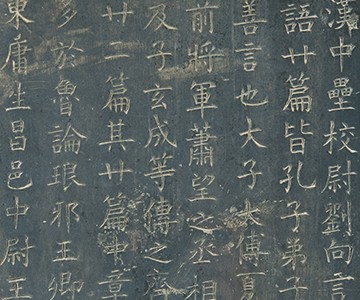 漢中壘校尉劉向言
語廿篇皆孔子弟子
善言也大子大傅夏
前將軍蕭望之丞相
及子玄成等傳之齊
廿二篇其廿篇中章
多於魯論琅邪王卿
東庸生昌邑中尉王